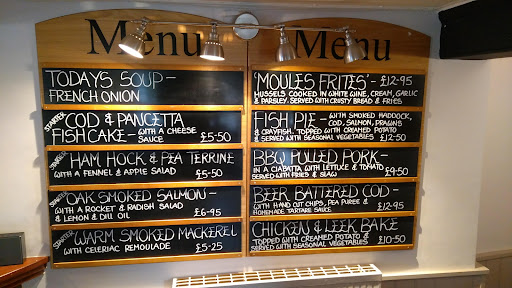 Menu
TODAYS SOUP –
FRENCH ONION
STARTER
COD & PANCETTA
FISHCAKE – WITH A CHEESE
SAUCE £5-50
STARTER
HAM HOCK & PEA TERRINE
WITH A FENNEL & APPLE SALAD £5-50
STARTER
OAK SMOKED SALMON –
WITH A ROCKET & RADISH SALAD
& LEMON & DILL OIL £6-95
STARTER
WARM SMOKED MACKEREL
WITH CELERIAC REMOULADE £5-25
Menu
'MOULES FRITES' – £12-95
MUSSELS COOKED IN WHITE WINE, CREAM, GARLIC
& PARSLEY. SERVED WITH CRUSTY BREAD & FRIES
FISH PIE – WITH SMOKED HADDOCK,
COD, SALMON, PRAWNS
& CRAYFISH. TOPPED WITH CREAMED POTATO
& SERVED WITH SEASONAL VEGETABLES £12-50
BBQ PULLED PORK –
IN A CIABATTA WITH LETTUCE & TOMATO
SERVED WITH FRIES & SLAW £9-50
BEER BATTERED COD –
WITH HAND CUT CHIPS, PEA PUREE &
HOMEMADE TARTARE SAUCE £12-95
CHICKEN & LEEK BAKE
TOPPED WITH CREAMED POTATO &
SERVED WITH SEASONAL VEGETABLES £10-50